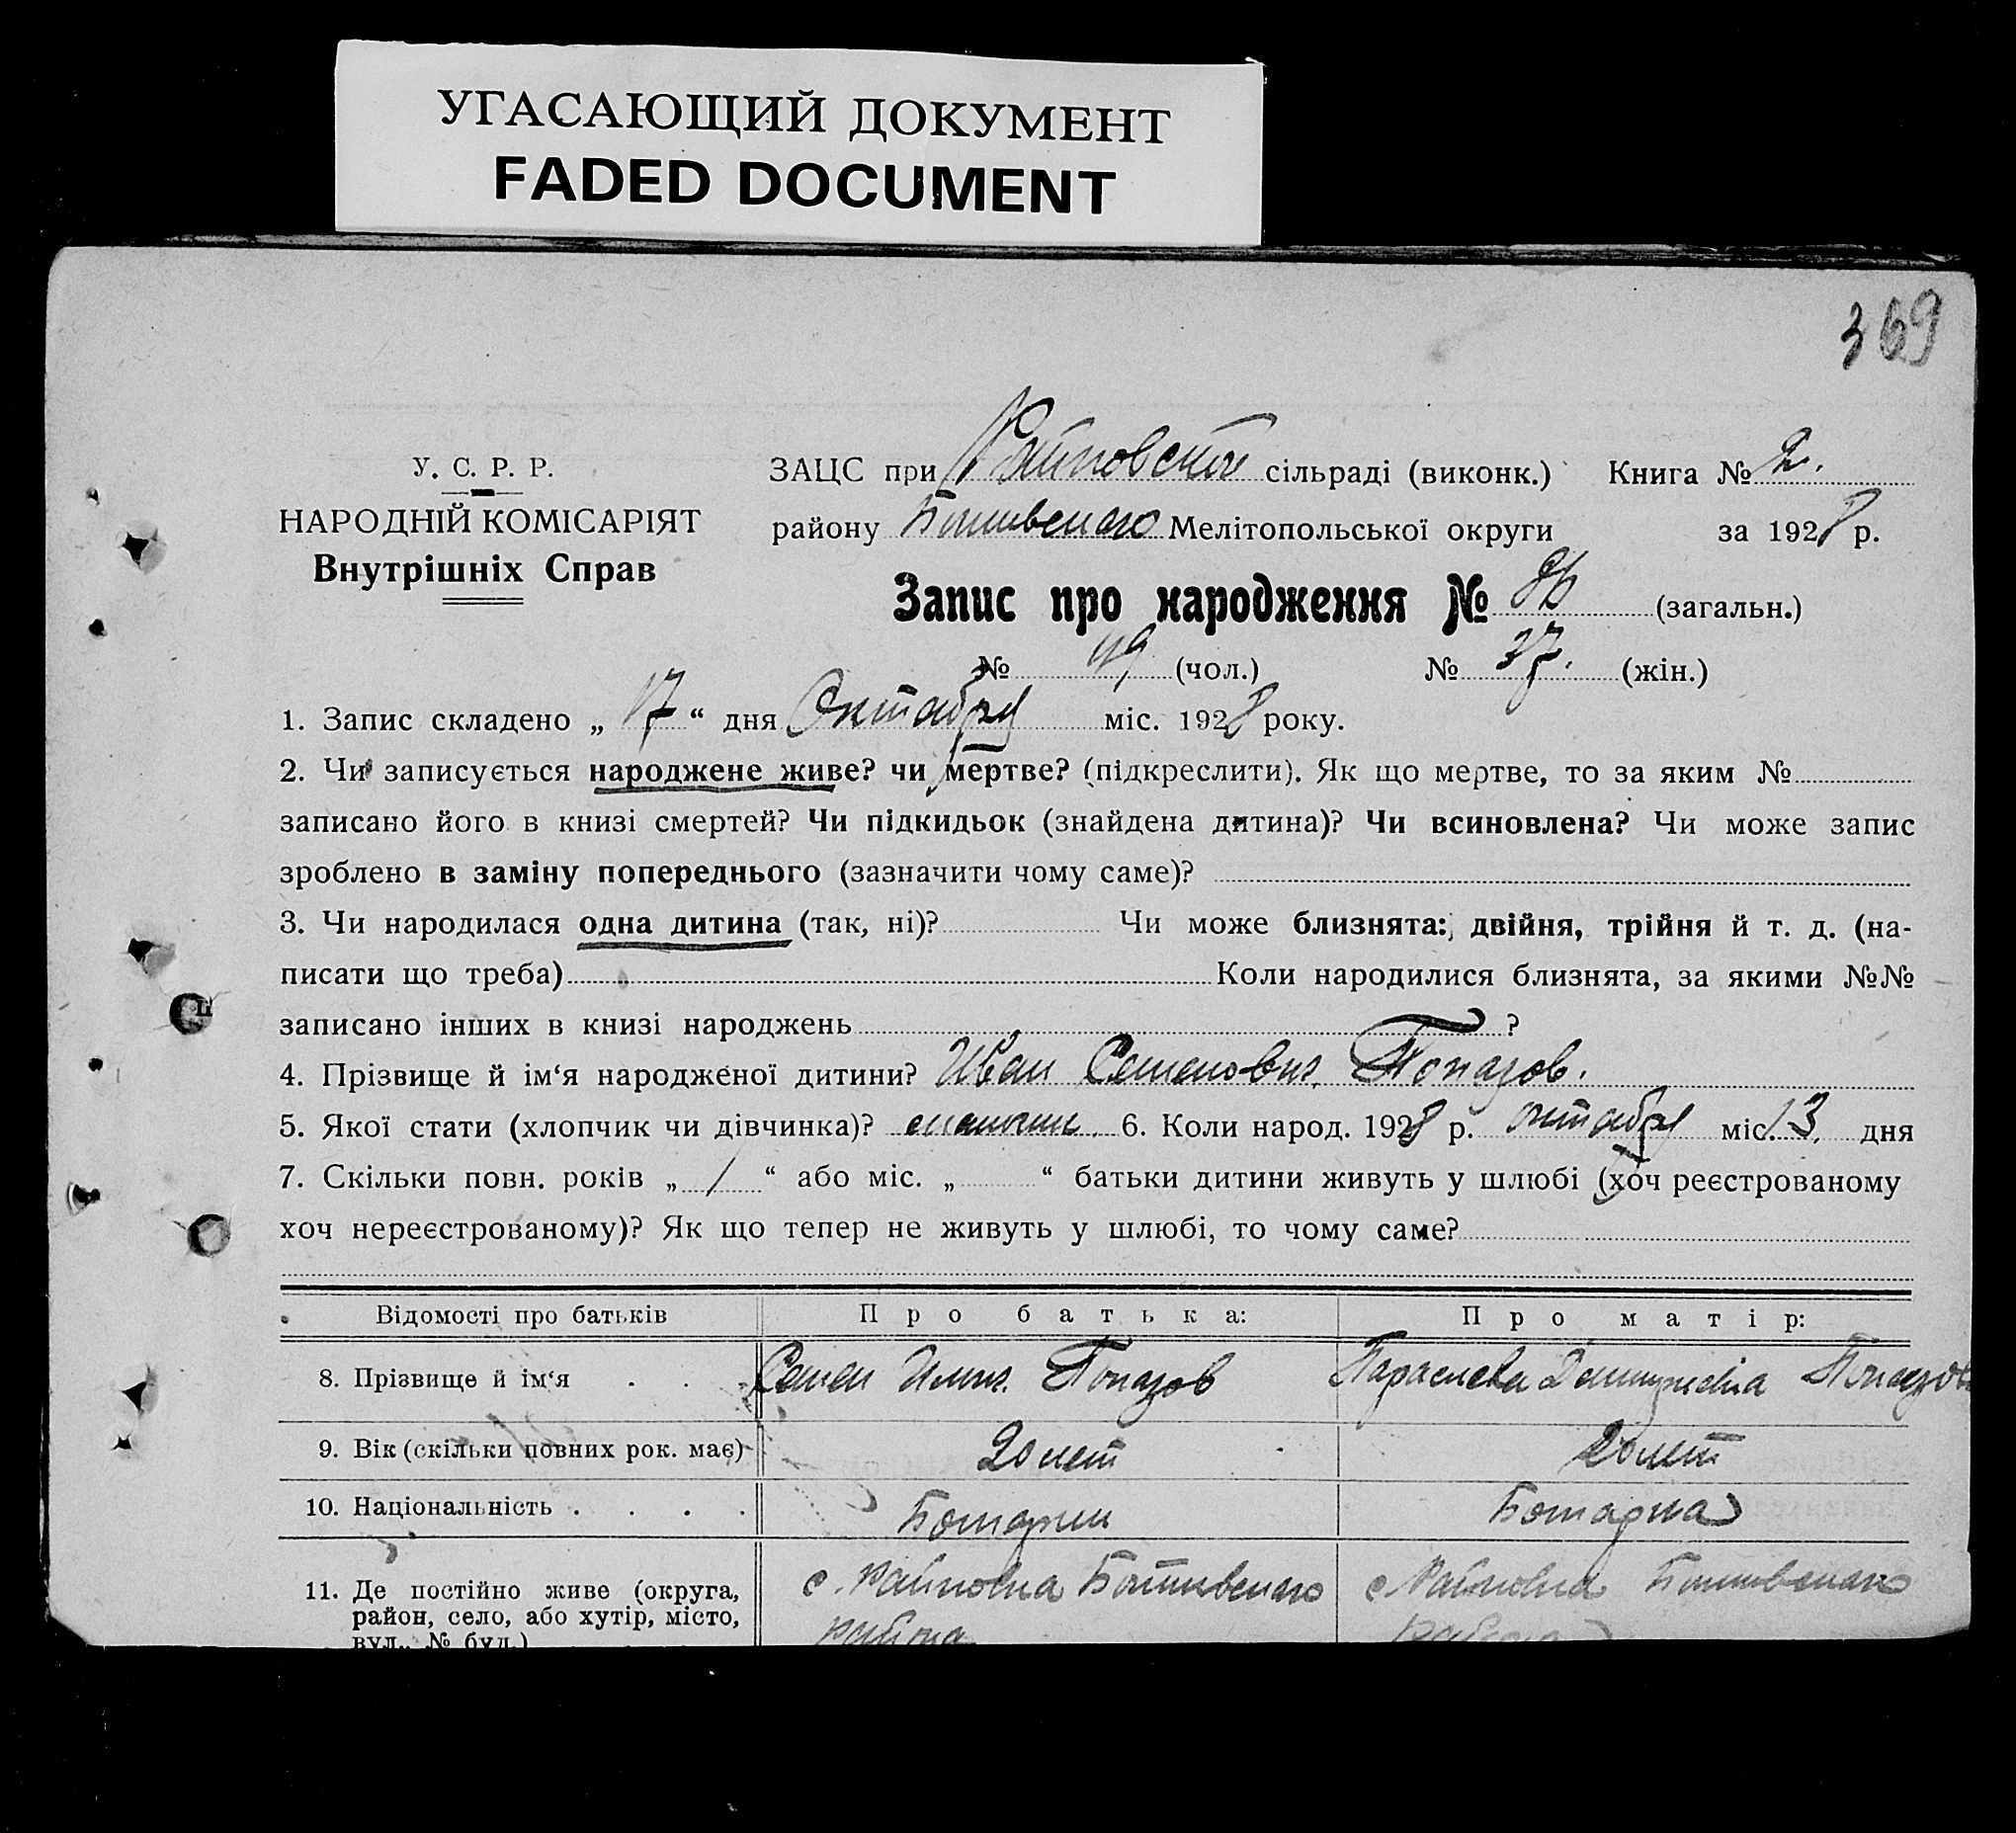 УГАСАЮЩИЙ ДОКУМЕНТ
FADED DOCUMENT
369
У. С. Р. Р.
НАРОДНІЙ КОМІСАРІЯТ
Внутрішніх Справ
ЗАЦС при Райновском сільраді (виконк.) Книга № 2.
району Ботивского Мелітопольської округи за 1928 р.
Запис про народження № 86 (загальн.)
№ 49 (чол.) № 37. (жін.)
1. Запис складено „ 17 “ дня Октября міс. 1928 року.
2. Чи записується народжене живе? чи мертве? (підкреслити). Як що мертве, то за яким №
записано його в книзі смертей? Чи підкидьок (знайдена дитина)? Чи всиновлена? Чи може запис
зроблено в заміну попереднього (зазначити чому саме)?
3. Чи народилася одна дитина (так, ні)? Чи може близнята: двійня, трійня й т. д. (на-
писати що треба) Коли народилися близнята, за якими №№
записано інших в книзі народжень ?
4. Прізвище й ім‘я народженої дитини? Иван Семенович. Топазов.
5. Якої стати (хлопчик чи дівчинка)? 6. Коли народ. 1928 р. октября міс. 13. дня
7. Скільки повн. років „ 1 “ або міс. „ “ батьки дитини живуть у шлюбі (хоч реєстрованому
хоч нереєстрованому)? Як що тепер не живуть у шлюбі, то чому саме?
Відомості про батьків Про батька: Про матір:
8. Прізвище й ім‘я . . . Семен Илич. Топазов Параскева Топазова
9. Вік (скільки повних рок. має) 20 лет 20 лет
10. Національність . . . . Болгарин Болгарка
11. Де постійно живе (округа, с. Райновка Ботивского с Райновка Ботивского
район, село, або хутір, місто, района района
вул., № буд.)